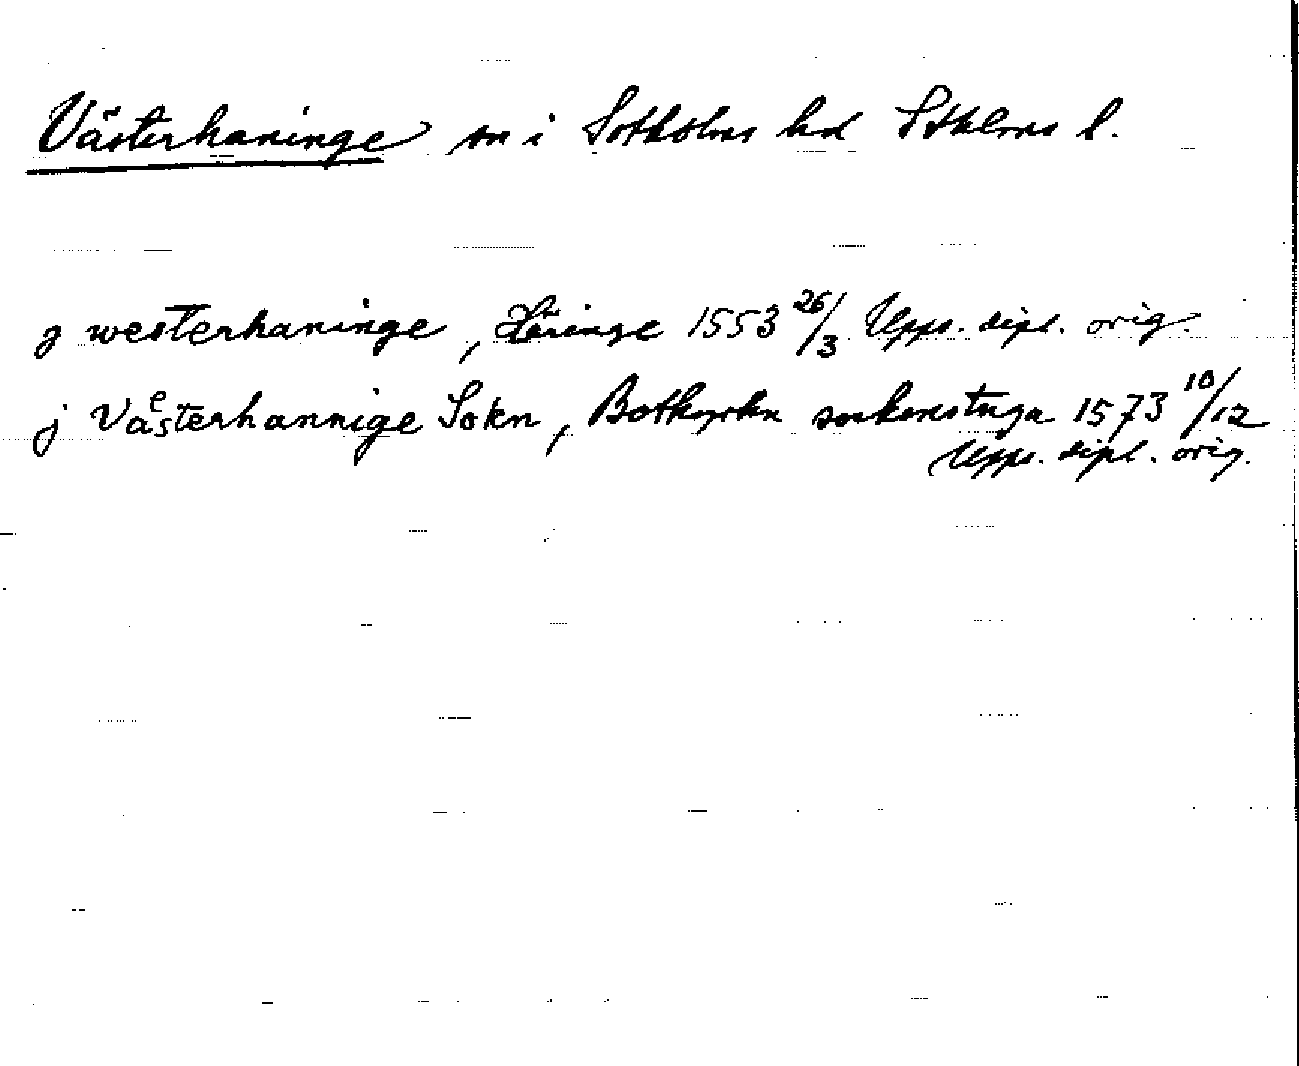 Västerhaninge sn i Sotholms hd Sthlms l.
j westerhaninge, Häringe 1553 26/3 Upps. dipl. orig.
j Vaͤsterhannige Sokn, Botkyrka sockenstuga 1573 10/12
Upps. dipl. orig.